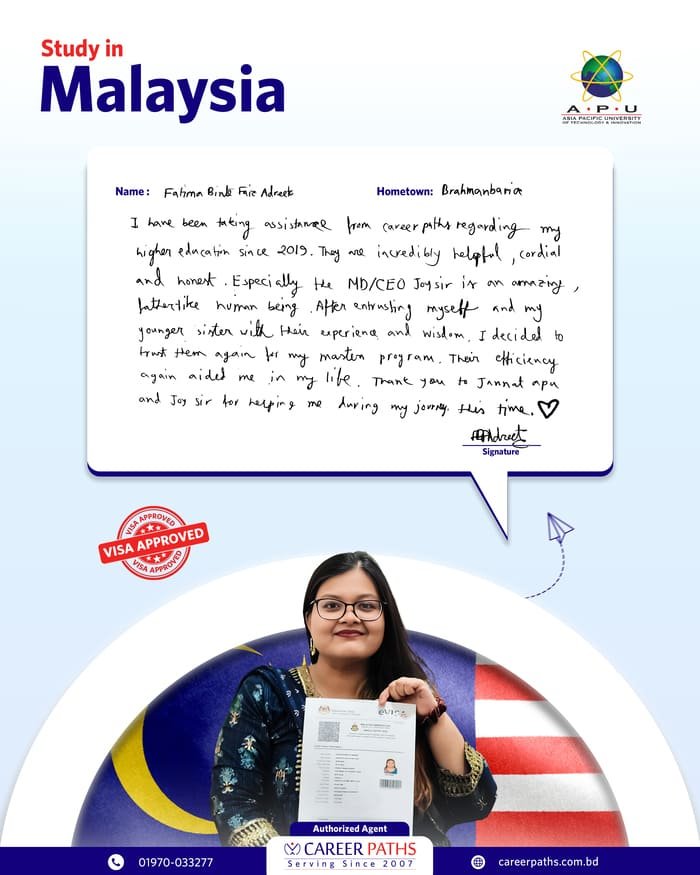 Study in
Malaysia
A·P·U
ASIA PACIFIC UNIVERSITY
OF TECHNOLOGY & INNOVATION
Name: Fatima Binte Faiz Adreet
Hometown: Brahmanbaria
I have been taking assistance from career paths regarding my
higher education since 2019. They are incredibly helpful, cordial
and honest. Especially the MD/CEO Joy sir is an amazing,
fatherlike human being. After entrusting myself and my
younger sister with their experience and wisdom, I decided to
trust them again for my masters program. Their efficiency
again aided me in my life. Thank you to Jannat apu
and Joy sir for helping me during my journey this time.
Adreet
Signature
VISA APPROVED
VISA APPROVED
VISA APPROVED
eVISA
Authorized Agent
CAREER PATHS
Serving Since 2007
01970-033277
careerpaths.com.bd